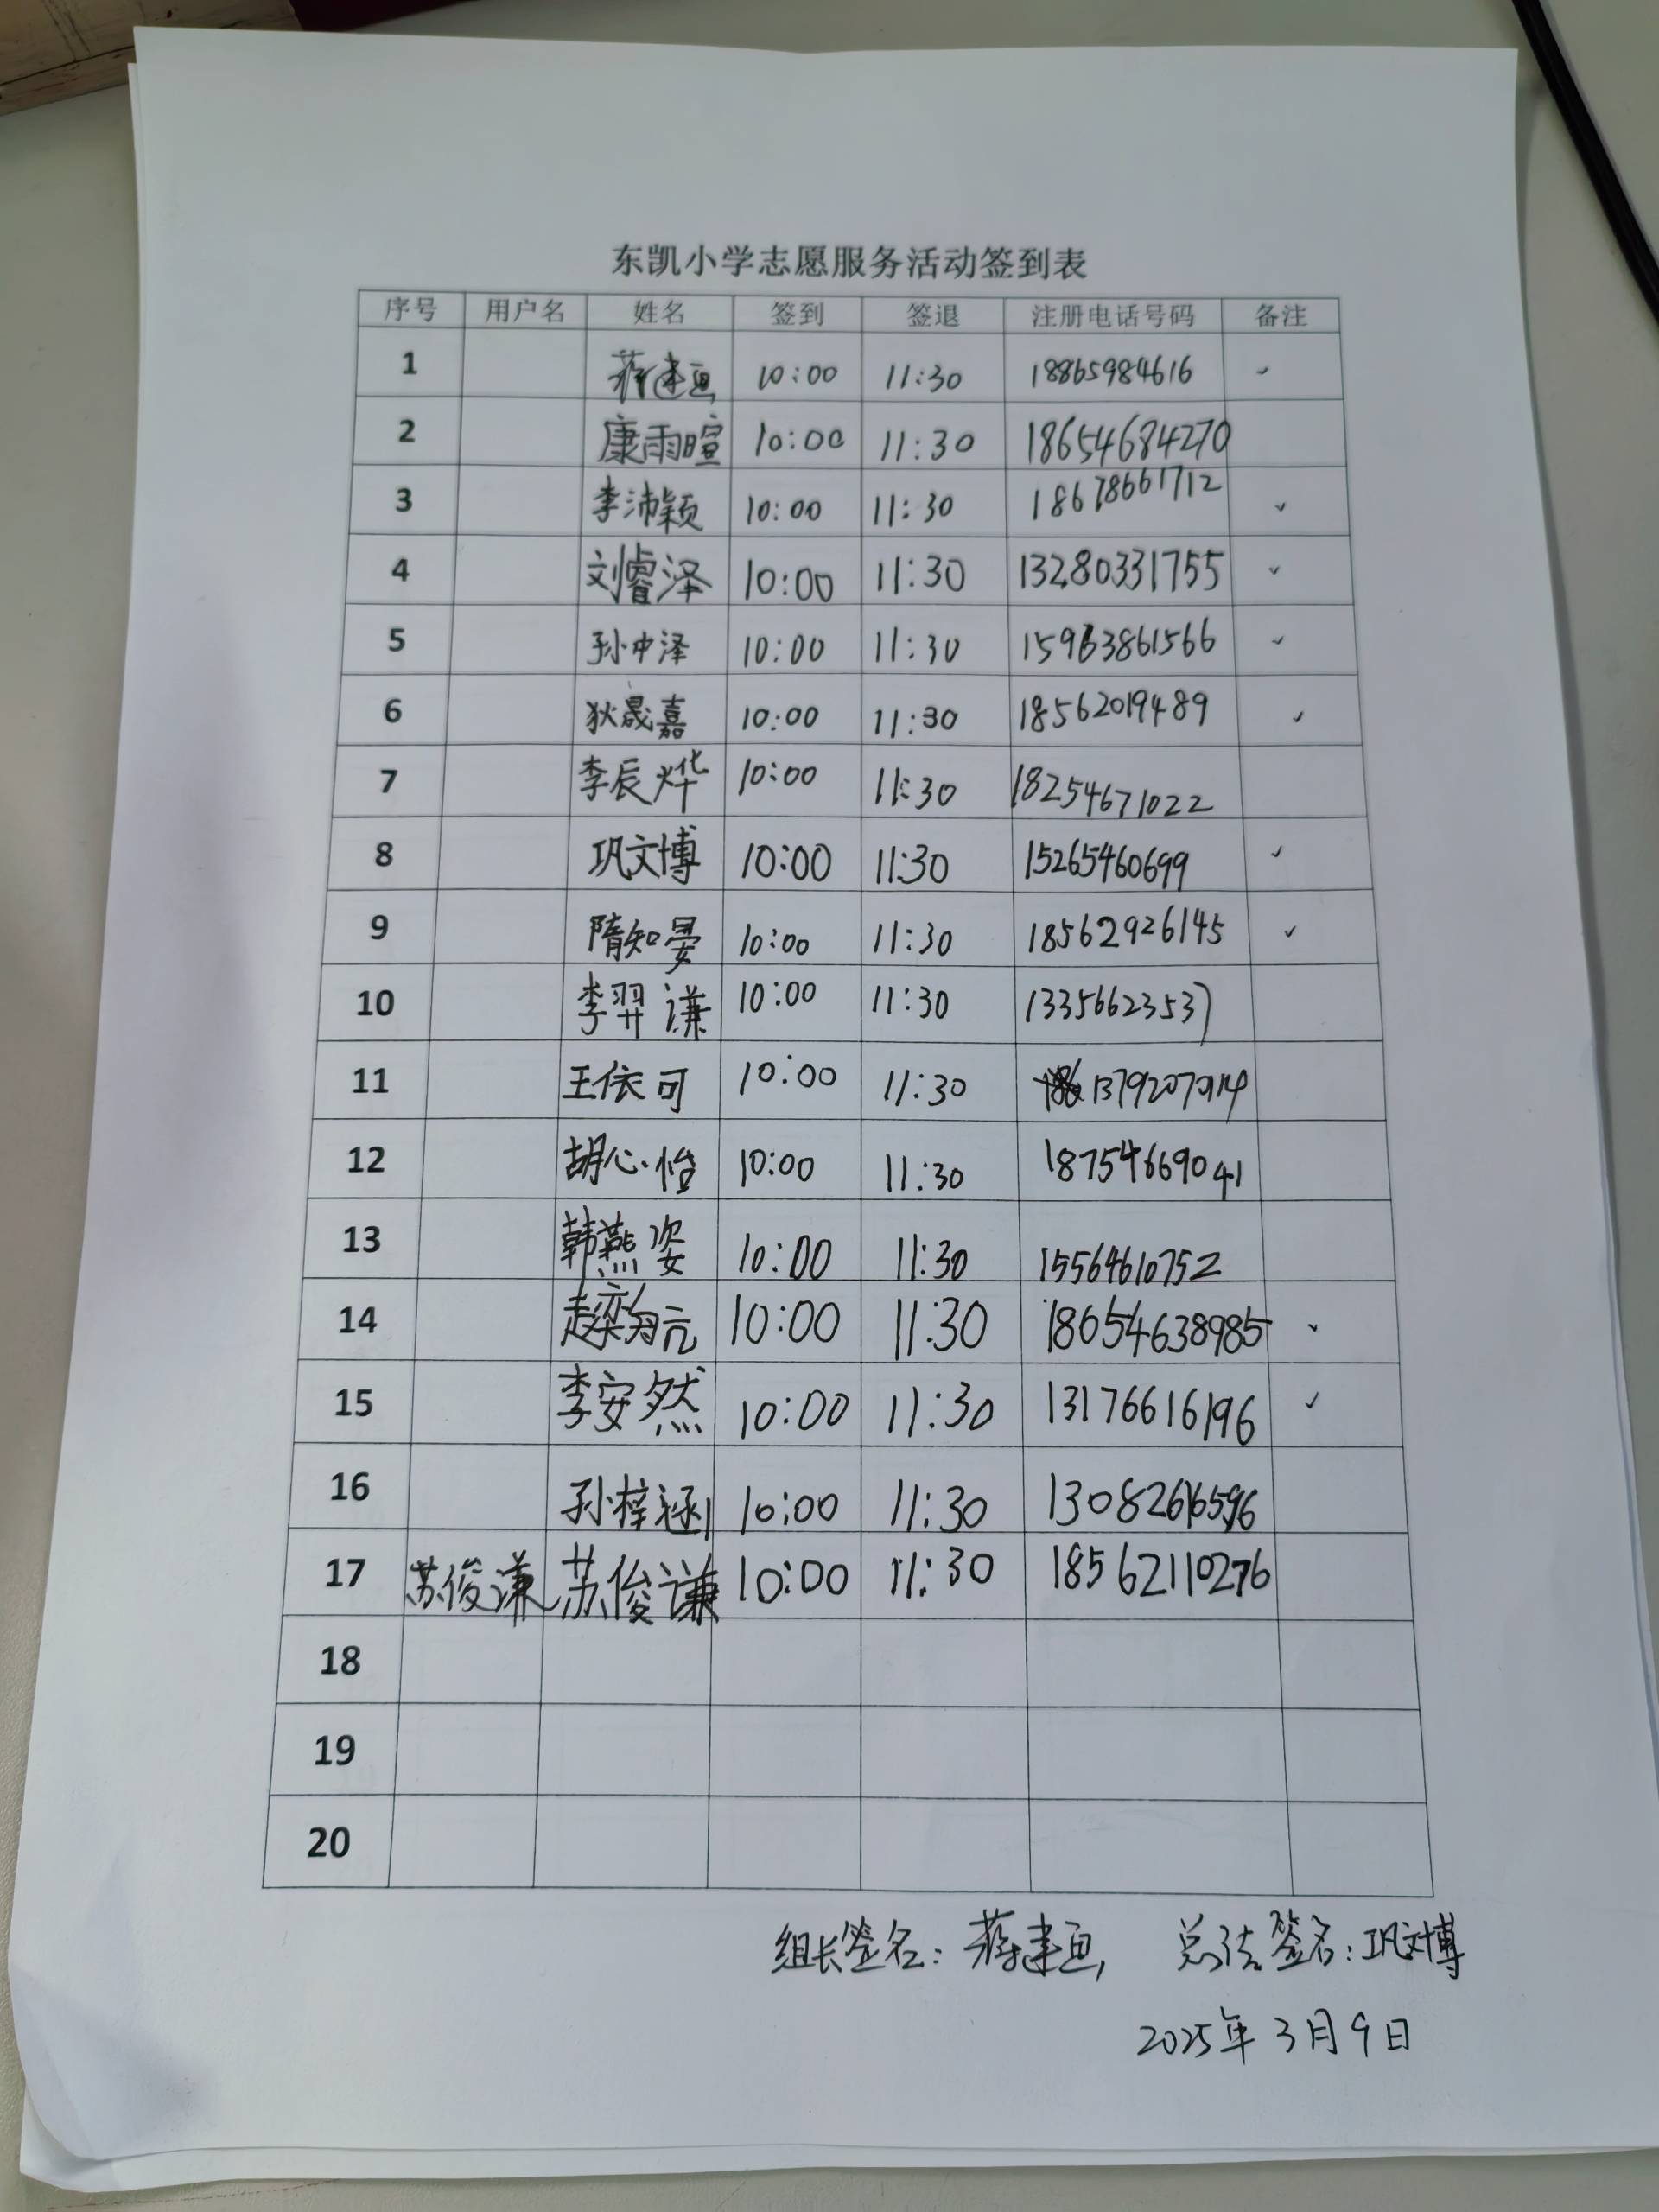 东凯小学志愿服务活动签到表
序号 用户名 姓名 签到 签退 注册电话号码 备注
1 蒋建画 10:00 11:30 18865984616 ✓
2 康雨暄 10:00 11:30 18654684270
3 李沛颖 10:00 11:30 18678661712 ✓
4 刘睿泽 10:00 11:30 13280331755 ✓
5 孙中泽 10:00 11:30 15963861566 ✓
6 狄晟嘉 10:00 11:30 18562019489 ✓
7 李辰烨 10:00 11:30 18254671022
8 巩文博 10:00 11:30 15265460699 ✓
9 隋知晏 10:00 11:30 18562926145 ✓
10 李羿谦 10:00 11:30 13356623537
11 王依可 10:00 11:30
12 胡心怡 10:00 11:30 18754669041
13 韩燕姿 10:00 11:30 15564610752
14 赵奕翔元 10:00 11:30 18654638985 ✓
15 李安然 10:00 11:30 13176616196 ✓
16 孙梓涵 10:00 11:30 13082616596
17 苏俊谦 苏俊谦 10:00 11:30 18562110276
18
19
20
组长签名：蒋建画 签名：巩文博
2025年3月9日